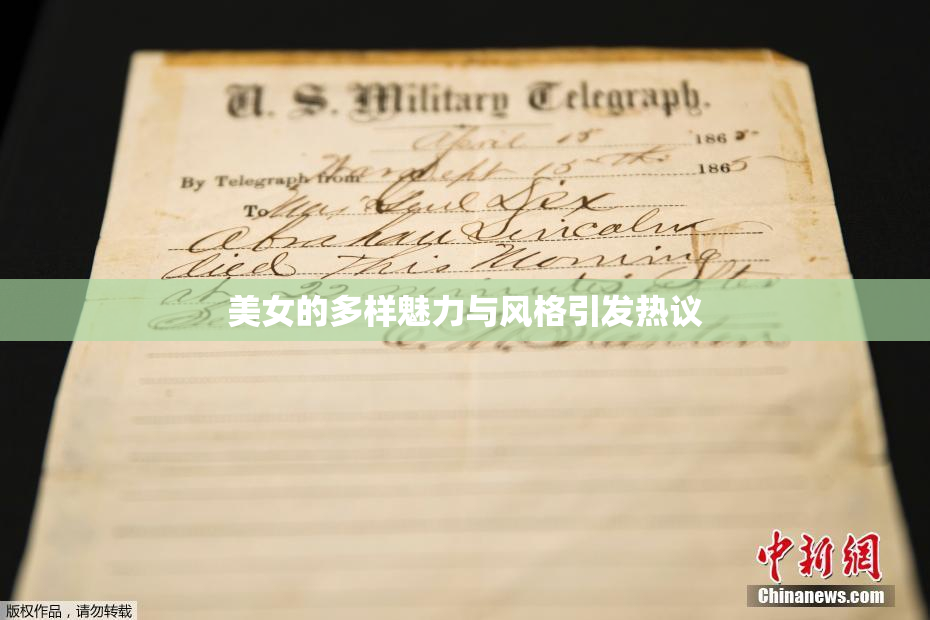 U. S. Military Telegraph.
April 15 1865
By Telegraph from War Dept 15th 1865
To Maj Genl Dix
Abraham Lincoln
died This Morning
at 22 minutes after
美女的多样魅力与风格引发热议
E. M. Stanton
中新网
Chinanews.com
版权作品，请勿转载